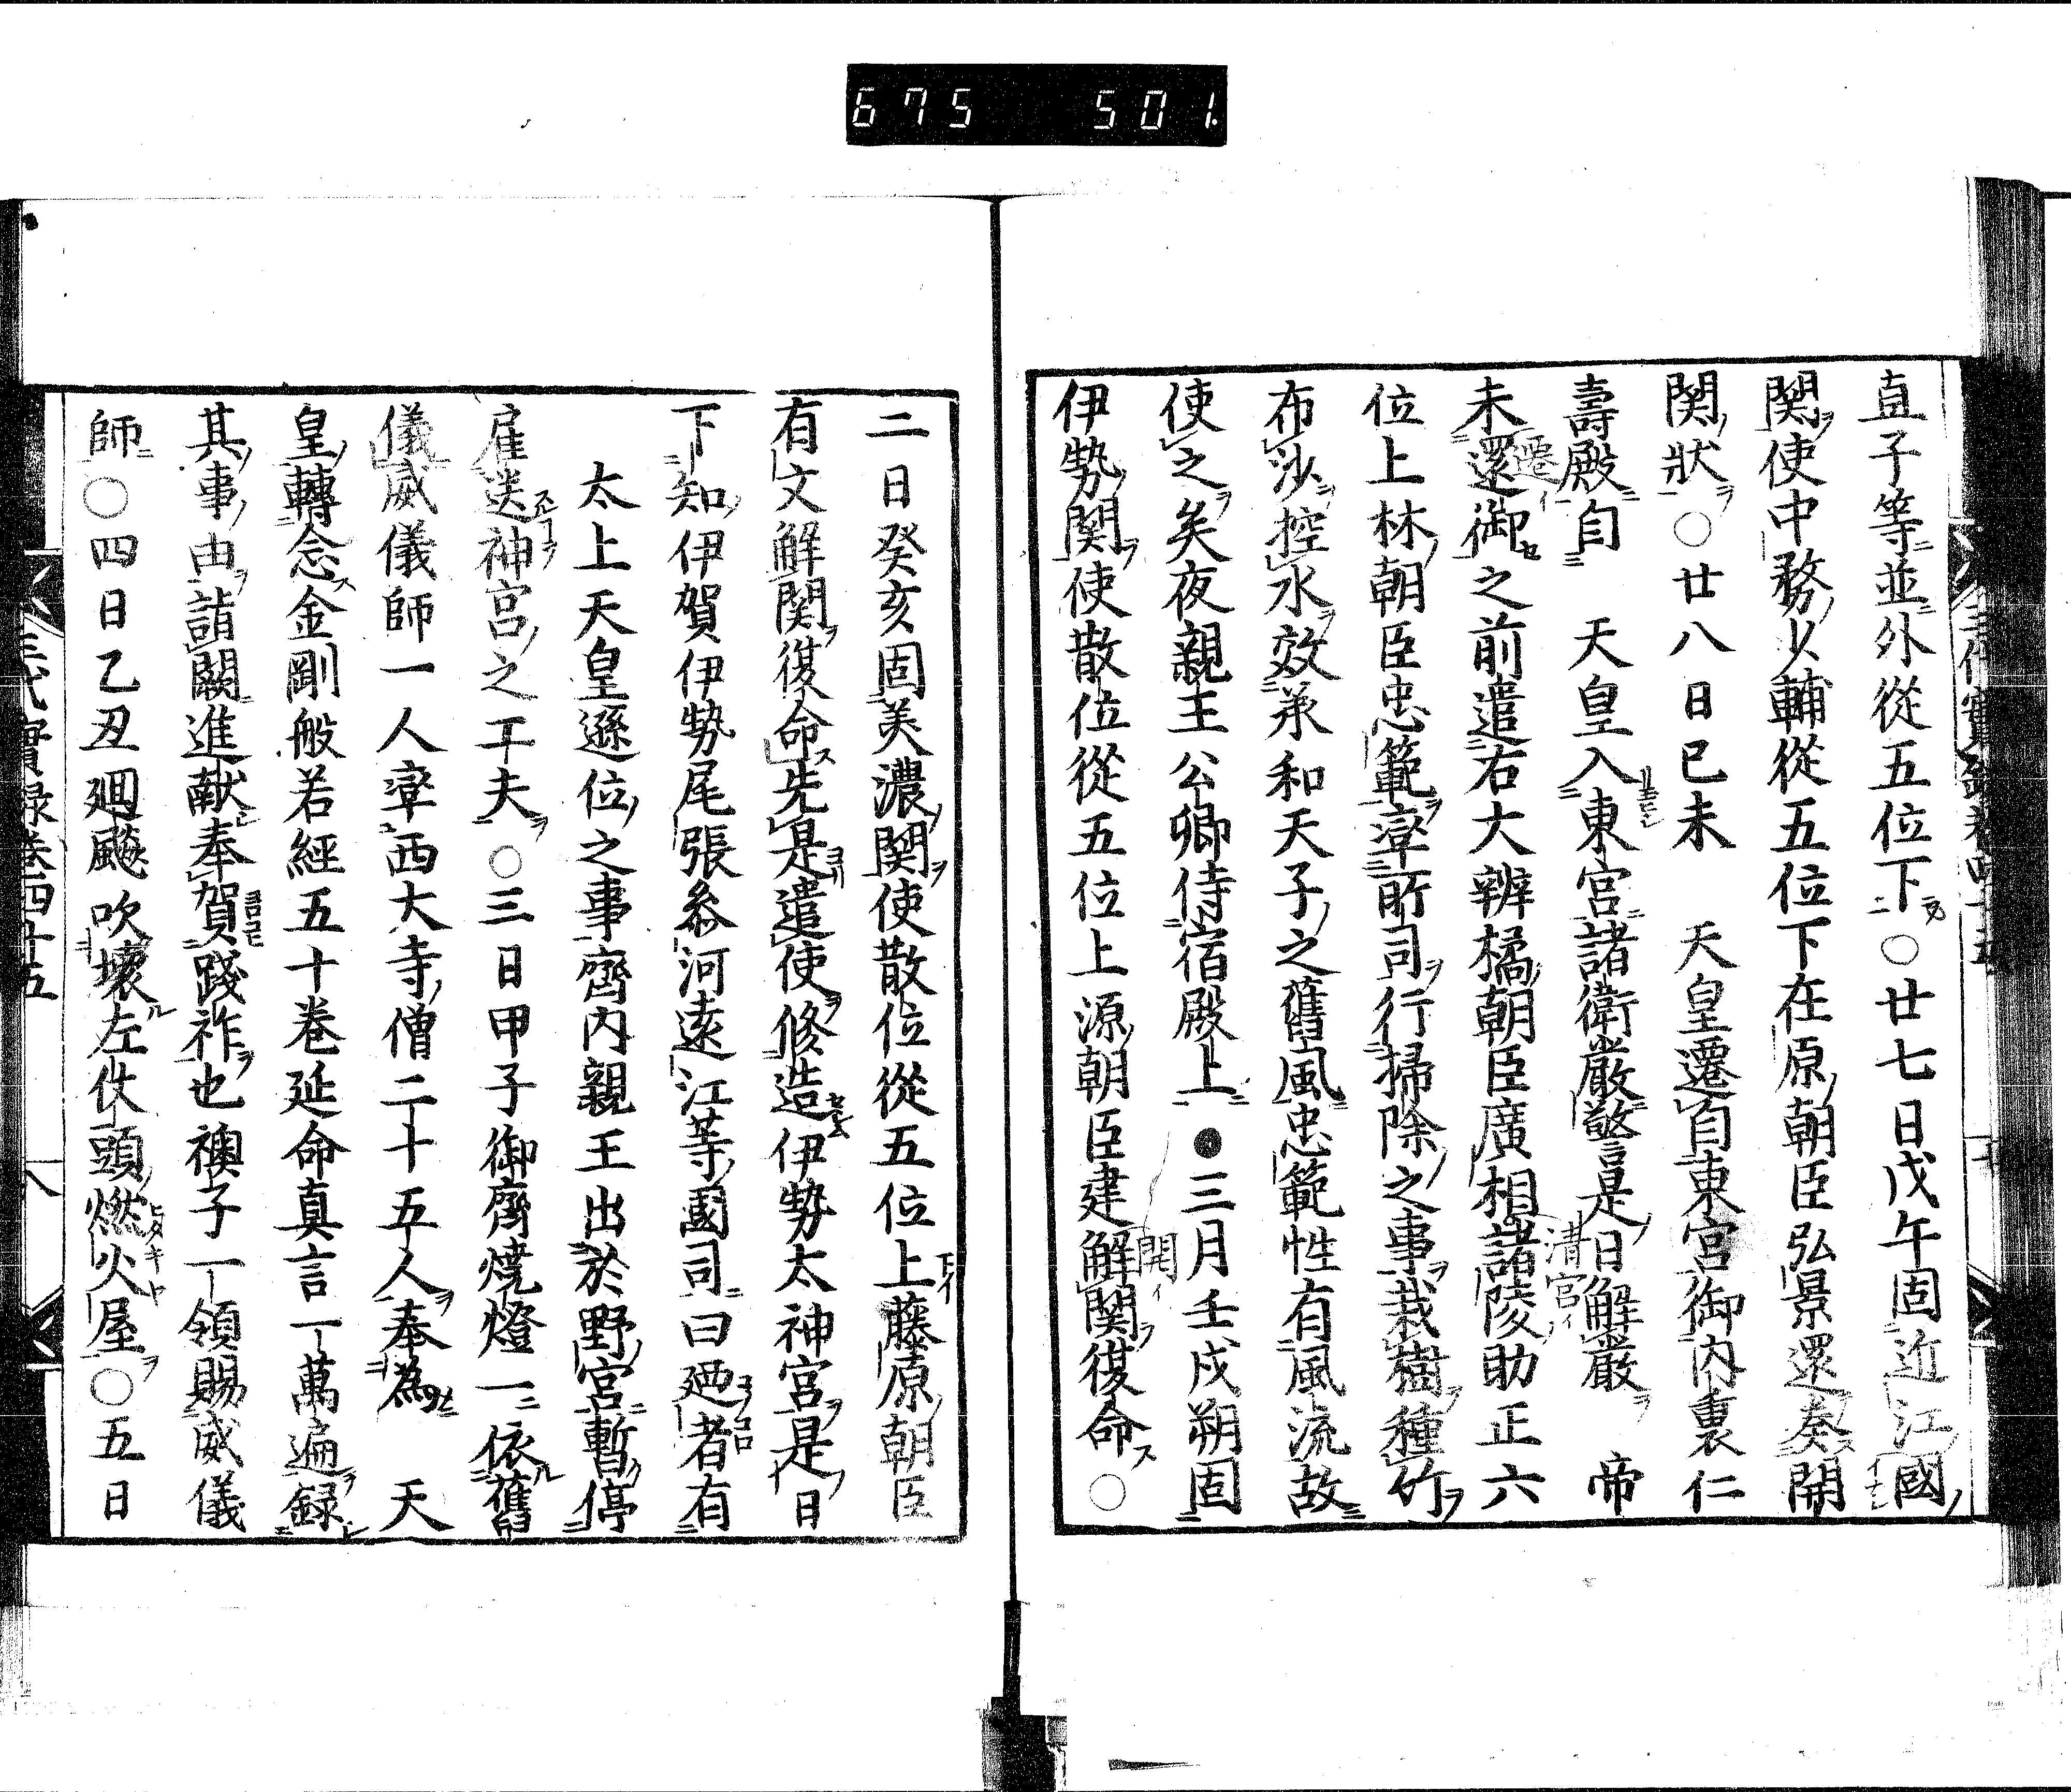 675 501.
直子等並外從五位下○廿七日戊午固近江國
関使中務少輔從五位下在原朝臣弘景還奏開
関狀○廿八日已未　天皇遷自東宮御内裏仁
壽殿自　天皇入東宮諸衛嚴警是日解嚴　帝
未還御之前遣右大辨橘朝臣廣相諸陵助正六
位上林朝臣忠範率所司行掃除之事栽樹種竹
布沙控水效承和天子之舊風忠範性有風流故
使之矣夜親王公卿侍宿殿上●三月壬戌朔固
伊勢関使散位從五位上源朝臣建解関復命○
二日癸亥固美濃関使散位從五位上藤原朝臣
有文解関復命先是遣使修造伊勢太神宮是日
下知伊賀伊勢尾張叅河遠江等國司曰廼者有
太上天皇遜位之事齊内親王出於野宮暫停
雇送神宮之工夫○三日甲子御齊燒燈一依舊
儀威儀師一人率西大寺僧二十五人奉為　天
皇轉念金剛般若經五十巻延命真言一萬遍録
其事由詣闕進献奉賀踐祚也襖子一領賜威儀
師○四日乙丑廻飈吹壞左仗頭燃火屋○五日
三代實録卷四十五
八